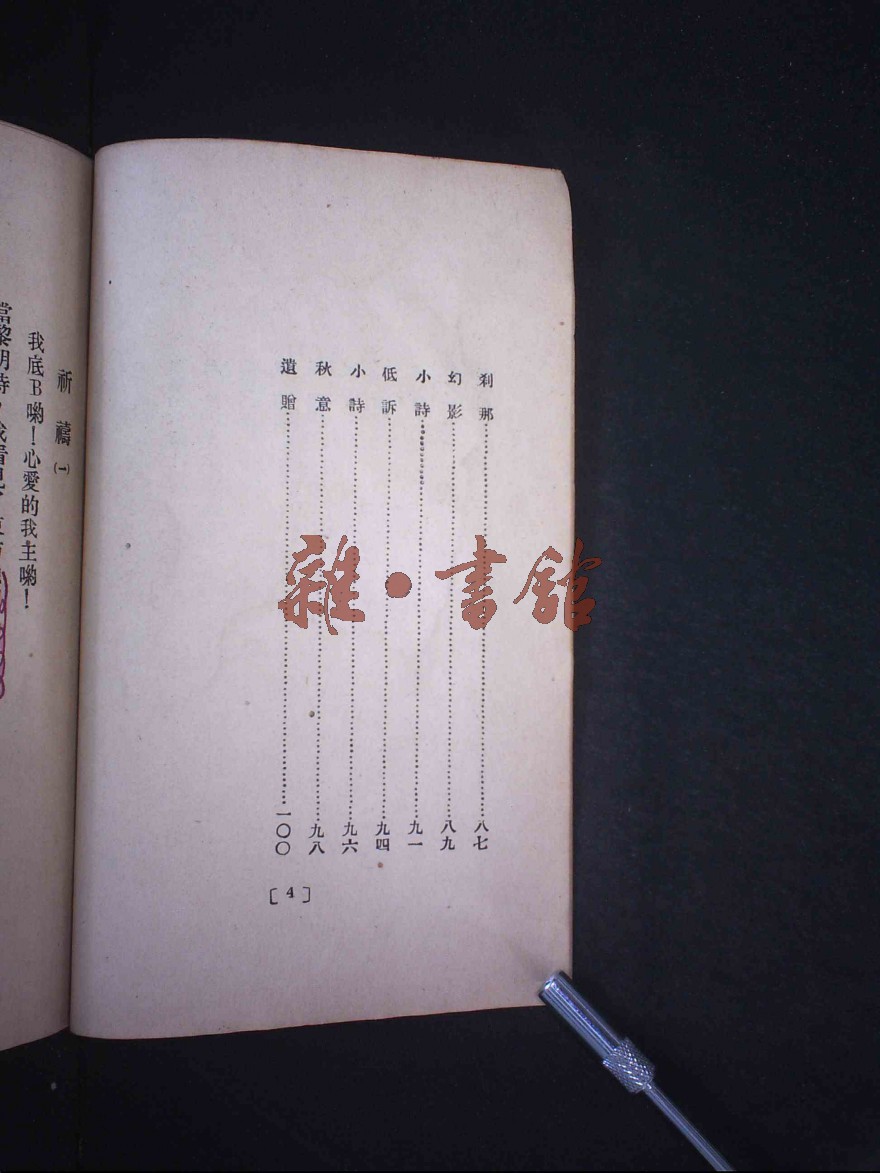 刹那……八七
幻影……八九
小詩……九一
低訴……九四
小詩……九六
秋意……九八
遺贈……一〇〇
[4]
祈禱(一)
我底B喲!心愛的我主喲!
當黎明時,我看見
雜·書館